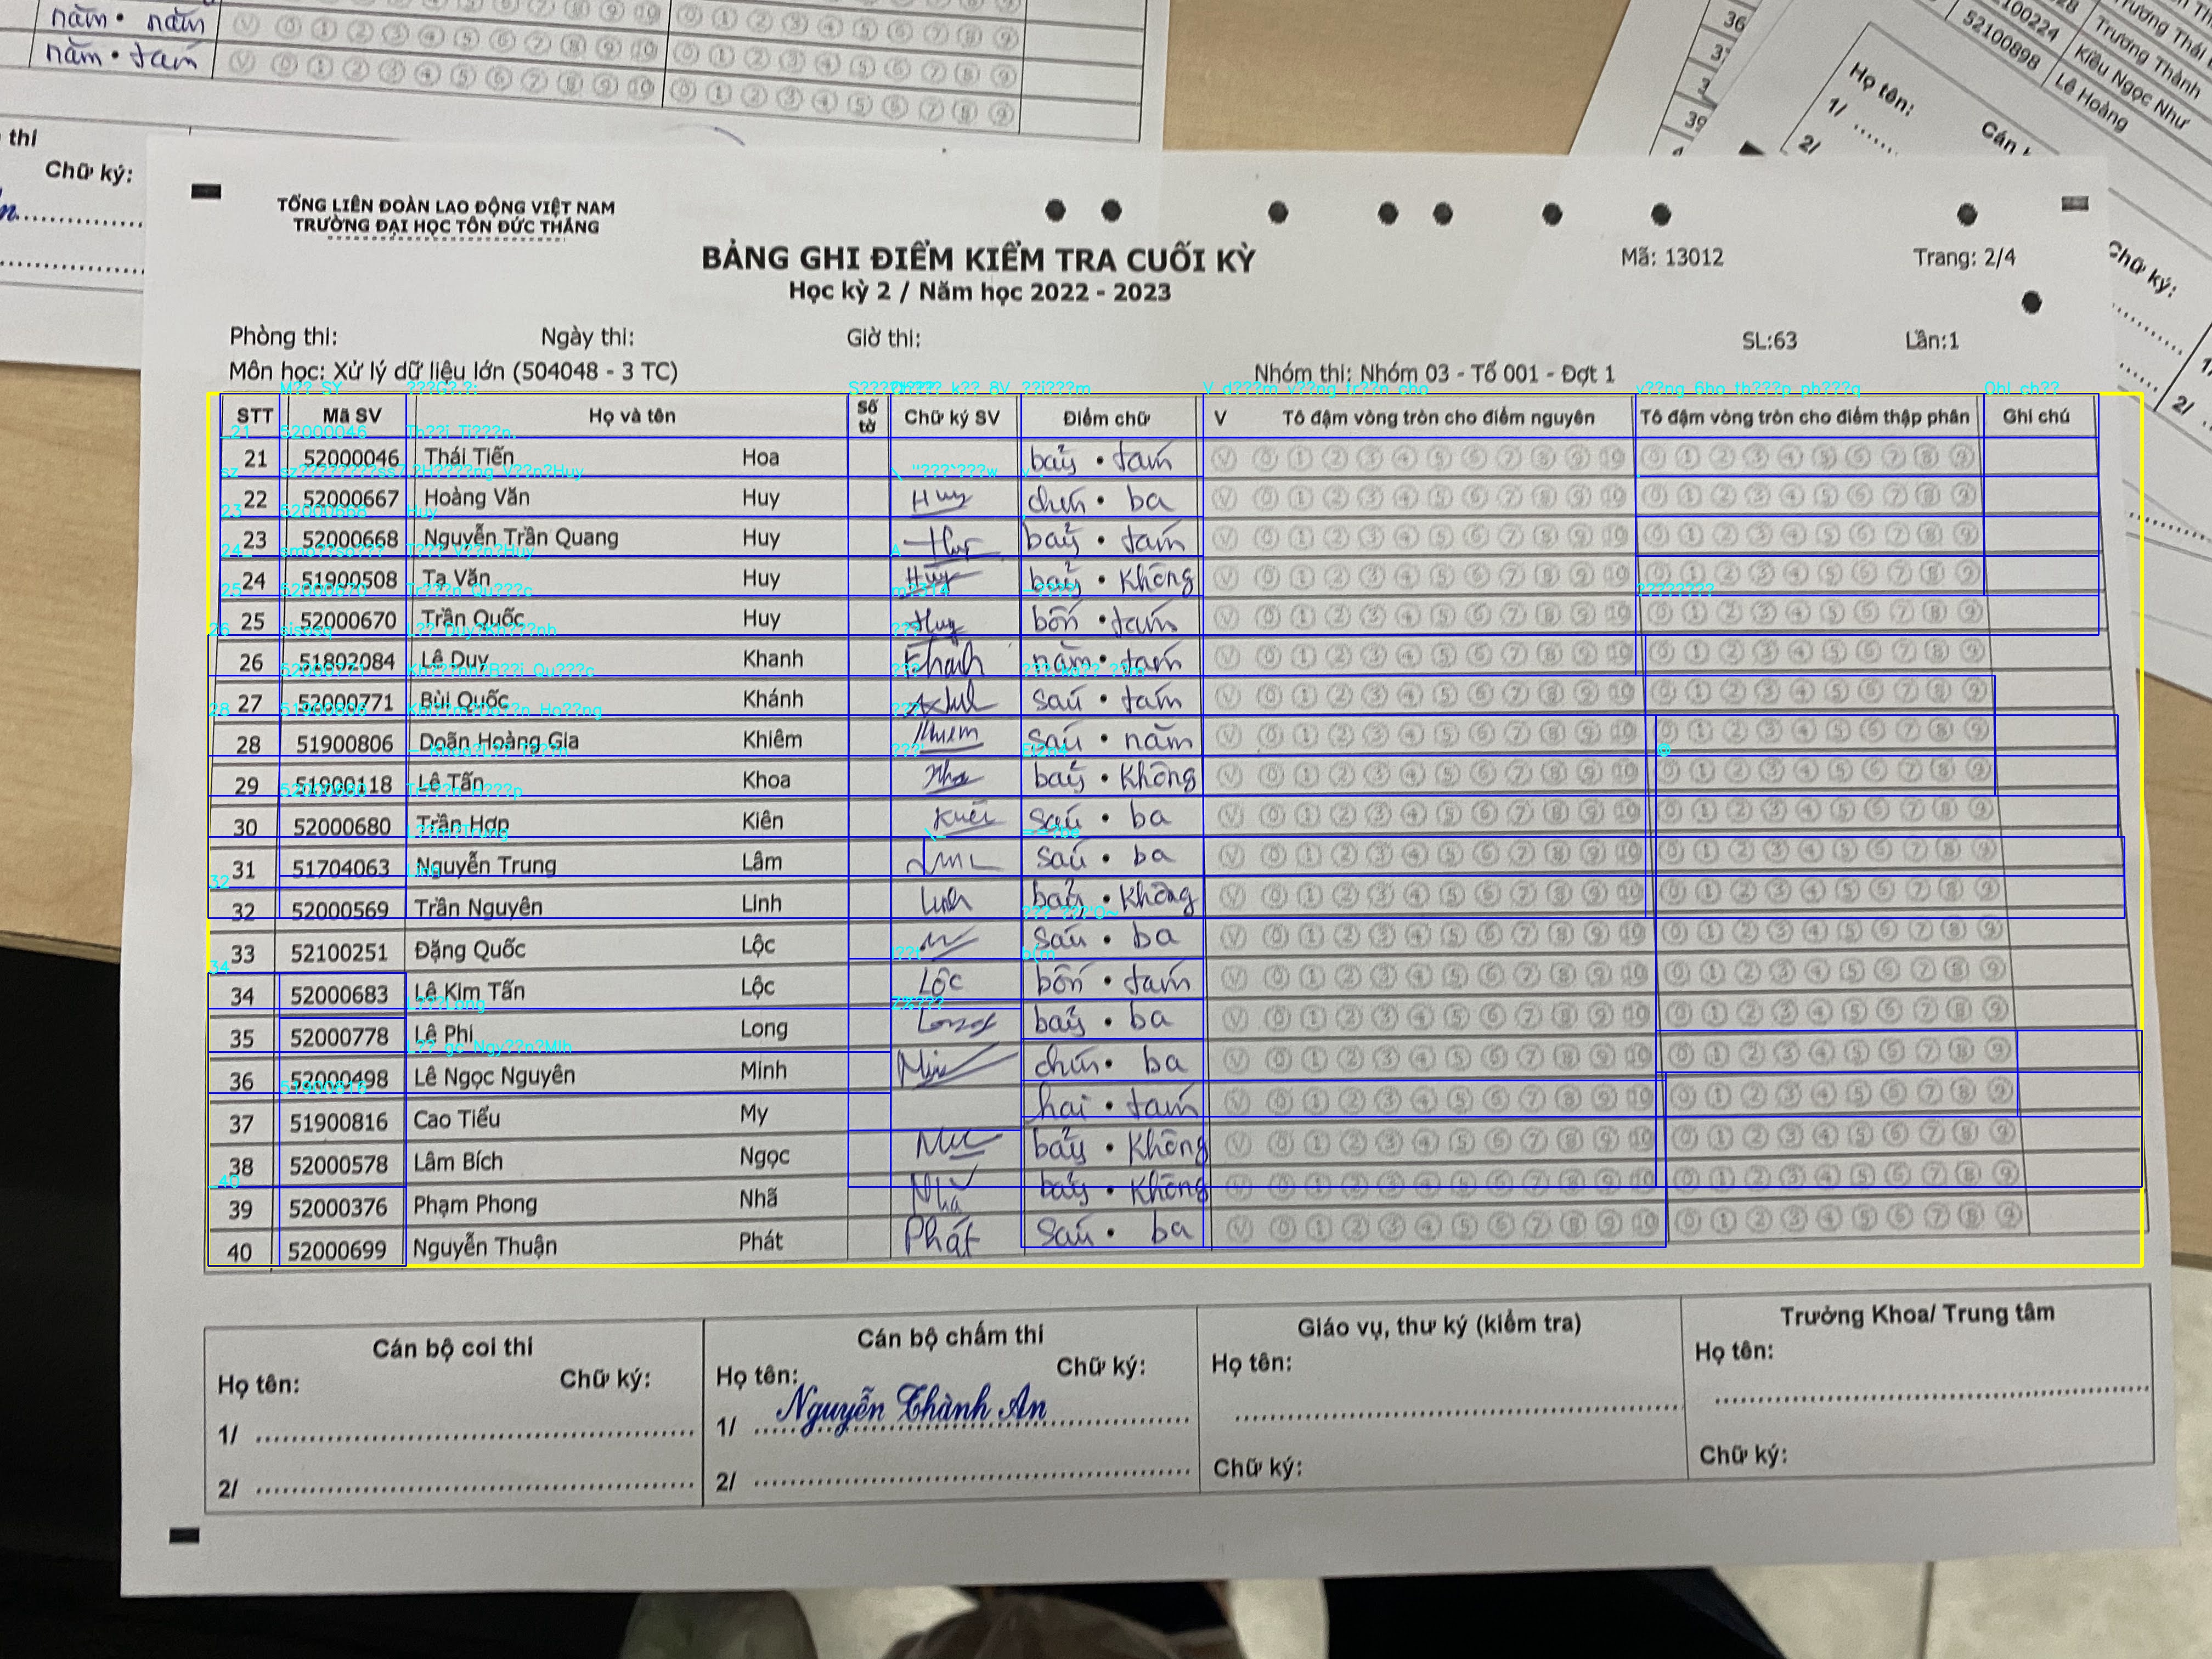 năm • năm
năm • tám
thi
Chữ ký:
36
39
52100898
Trương Thành
Kiều Ngọc Như
Lê Hoàng
Họ tên:
1/
2/
Chữ ký:
TỔNG LIÊN ĐOÀN LAO ĐỘNG VIỆT NAM
TRƯỜNG ĐẠI HỌC TÔN ĐỨC THẮNG
BẢNG GHI ĐIỂM KIỂM TRA CUỐI KỲ
Mã: 13012 Trang: 2/4
Học kỳ 2 / Năm học 2022 - 2023
Phòng thi: Ngày thi: Giờ thi: SL:63 Lần:1
Môn học: Xử lý dữ liệu lớn (504048 - 3 TC) Nhóm thi: Nhóm 03 - Tổ 001 - Đợt 1
STT Mã SV Họ và tên Số tờ Chữ ký SV Điểm chữ V Tô đậm vòng tròn cho điểm nguyên Tô đậm vòng tròn cho điểm thập phân Ghi chú
21 52000046 Thái Tiến Hoa bảy • tám V 0 1 2 3 4 5 6 7 8 9 10 0 1 2 3 4 5 6 7 8 9
22 52000667 Hoàng Văn Huy Huy chín • ba V 0 1 2 3 4 5 6 7 8 9 10 0 1 2 3 4 5 6 7 8 9
23 52000668 Nguyễn Trần Quang Huy Huy bảy • tám V 0 1 2 3 4 5 6 7 8 9 10 0 1 2 3 4 5 6 7 8 9
24 51900508 Tạ Văn Huy Huy bảy • Không V 0 1 2 3 4 5 6 7 8 9 10 0 1 2 3 4 5 6 7 8 9
25 52000670 Trần Quốc Huy Huy bốn • tám V 0 1 2 3 4 5 6 7 8 9 10 0 1 2 3 4 5 6 7 8 9
26 51802084 Lê Duy Khanh Khanh năm • tám V 0 1 2 3 4 5 6 7 8 9 10 0 1 2 3 4 5 6 7 8 9
27 52000771 Bùi Quốc Khánh sáu • tám V 0 1 2 3 4 5 6 7 8 9 10 0 1 2 3 4 5 6 7 8 9
28 51900806 Doãn Hoàng Gia Khiêm sáu • năm V 0 1 2 3 4 5 6 7 8 9 10 0 1 2 3 4 5 6 7 8 9
29 51900118 Lê Tấn Khoa bảy • Không V 0 1 2 3 4 5 6 7 8 9 10 0 1 2 3 4 5 6 7 8 9
30 52000680 Trần Hợp Kiên sáu • ba V 0 1 2 3 4 5 6 7 8 9 10 0 1 2 3 4 5 6 7 8 9
31 51704063 Nguyễn Trung Lâm sáu • ba V 0 1 2 3 4 5 6 7 8 9 10 0 1 2 3 4 5 6 7 8 9
32 52000569 Trần Nguyên Linh Linh bảy • Không V 0 1 2 3 4 5 6 7 8 9 10 0 1 2 3 4 5 6 7 8 9
33 52100251 Đặng Quốc Lộc sáu • ba V 0 1 2 3 4 5 6 7 8 9 10 0 1 2 3 4 5 6 7 8 9
34 52000683 Lê Kim Tấn Lộc Lộc bốn • tám V 0 1 2 3 4 5 6 7 8 9 10 0 1 2 3 4 5 6 7 8 9
35 52000778 Lê Phi Long Long bảy • ba V 0 1 2 3 4 5 6 7 8 9 10 0 1 2 3 4 5 6 7 8 9
36 52000498 Lê Ngọc Nguyên Minh chín • ba V 0 1 2 3 4 5 6 7 8 9 10 0 1 2 3 4 5 6 7 8 9
37 51900816 Cao Tiểu My hai • tám V 0 1 2 3 4 5 6 7 8 9 10 0 1 2 3 4 5 6 7 8 9
38 52000578 Lâm Bích Ngọc bảy • Không V 0 1 2 3 4 5 6 7 8 9 10 0 1 2 3 4 5 6 7 8 9
39 52000376 Phạm Phong Nhã Nhã bảy • Không V 0 1 2 3 4 5 6 7 8 9 10 0 1 2 3 4 5 6 7 8 9
40 52000699 Nguyễn Thuận Phát Phát Sáu • ba V 0 1 2 3 4 5 6 7 8 9 10 0 1 2 3 4 5 6 7 8 9
Cán bộ coi thi Cán bộ chấm thi Giáo vụ, thư ký (kiểm tra) Trưởng Khoa/ Trung tâm
Họ tên: Chữ ký: Họ tên: Chữ ký: Họ tên: Họ tên:
1/ 1/ Nguyễn Thành An
2/ 2/ Chữ ký: Chữ ký: